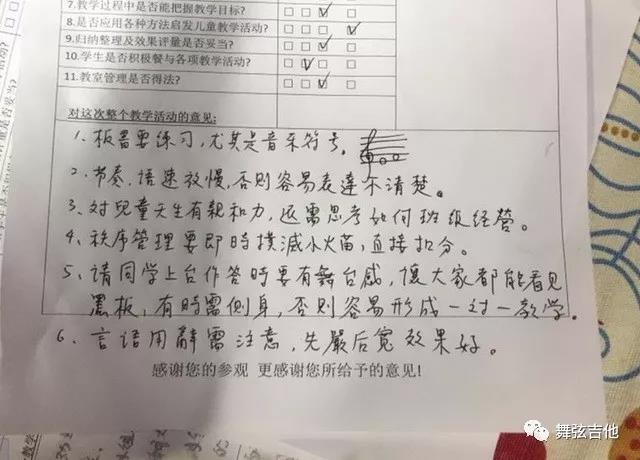 7.教学过程中是否能把握教学目标? □ □ ☑ □
8.是否应用各种方法启发儿童教学活动? □ □ □ ☑
9.归纳整理及效果评量是否妥当? □ □ ☑ □
10.学生是否积极餐与各项教学活动? □ ☑ □ □
11.教室管理是否得法? □ □ ☑ □
对这次整个教学活动的意见:
1、板書要练习,尤其是音乐符号。
2、节奏、语速放慢,否则容易表達不清楚。
3、对兒童天生有親和力,还需思考如何班级经营。
4、秩序管理要即時撲滅小火苗,直接扣分。
5、请同学上台作答時要有舞台感,讓大家都能看見
黑板,有時需侧身,否则容易形成一对一教学。
6、言语用辭需注意,先嚴后宽效果好。
感谢您的参观 更感谢您所给予的意见!
舞弦吉他